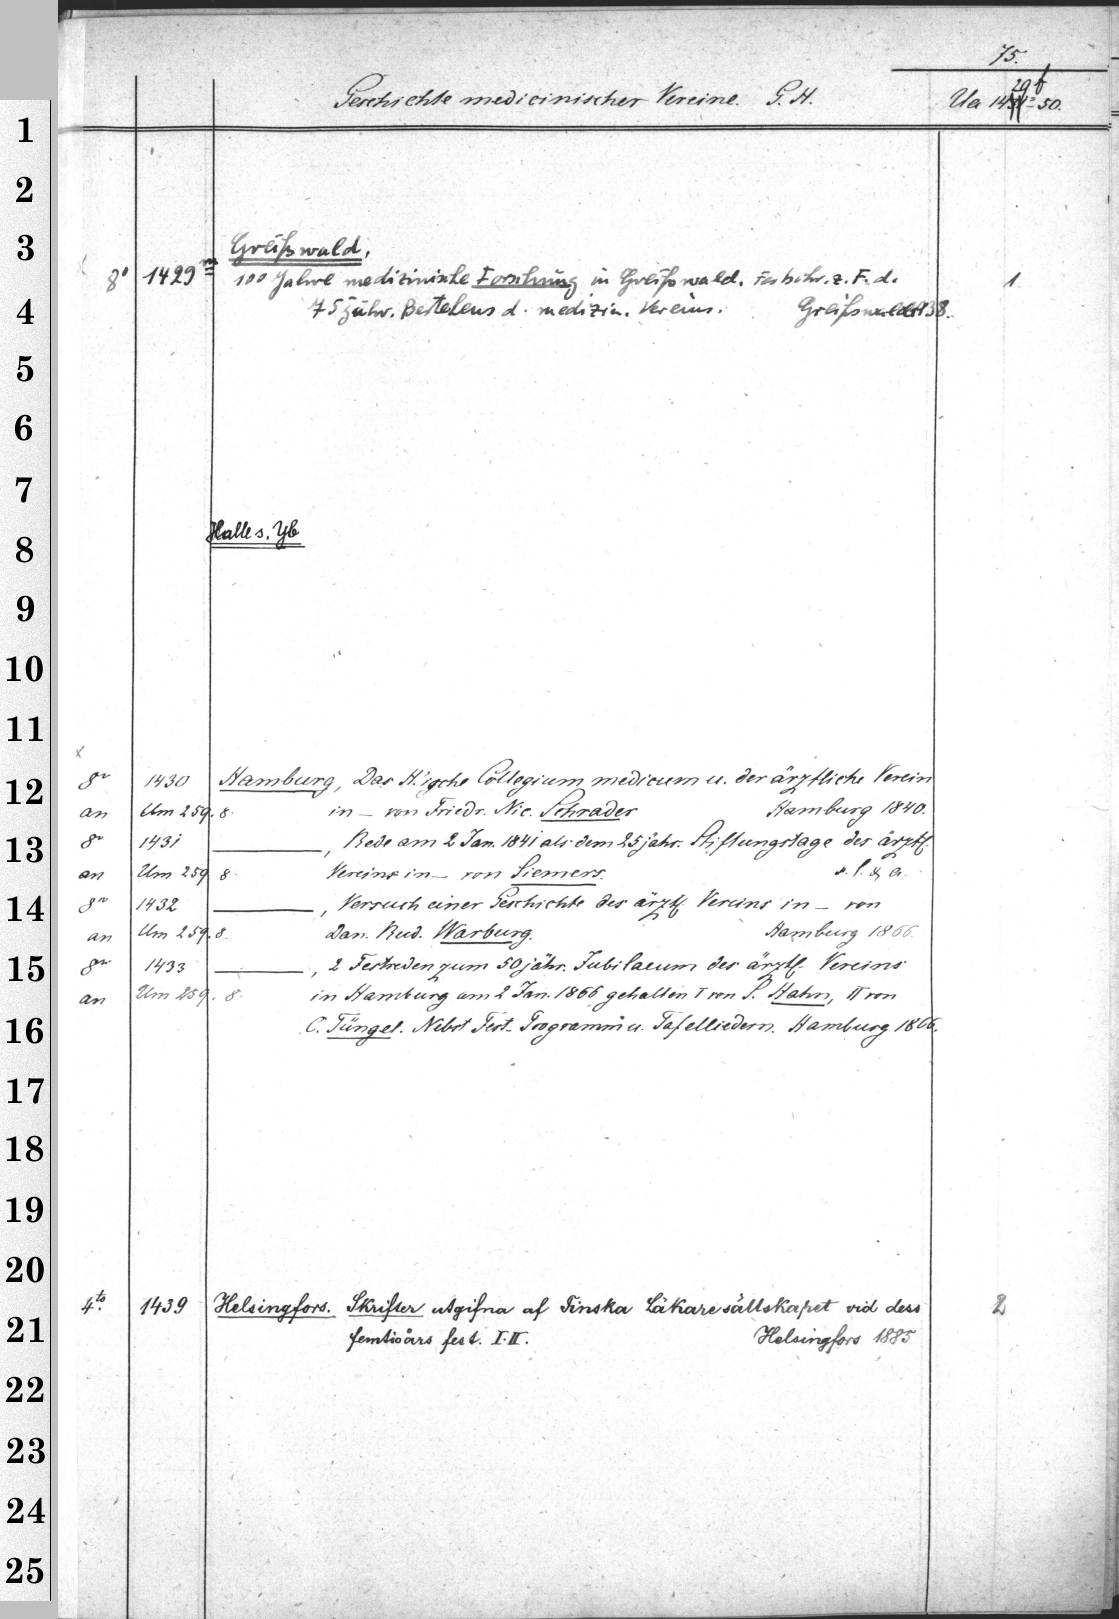 75.
Geschichte medicinischer Vereine. G. H. Ua 1429f-50.
1
2
3
Greifswald.
8° 1429m 100 Jahre medizinische Forschung in Greifswald. Festschr. z. F. d. 1
4
75jähr. Bestehens d. medizin. Vereins. Greifswald 1938.
5
6
7
Halle s. Yb
8
9
10
11
8vo 1430 Hamburg, Das H.'ische Collegium medicum u. der ärztliche Verein
12
an Um 259. 8. in — von Friedr. Nic. Schrader Hamburg 1840.
8vo 1431 ———, Rede am 2 Jan. 1841 als dem 25jähr. Stiftungstage des ärztl.
13
an Um 259 8. Vereins in — von Siemers. s. l. & a.
8vo 1432 ———, Versuch einer Geschichte des ärztl. Vereins in — von
14
an Um 259. 8. Dan. Rud. Warburg. Hamburg 1866.
8vo 1433 ———, 2 Festreden zum 50jähr. Jubilaeum des ärztl. Vereins
15
an Um 259. 8. in Hamburg am 2 Jan. 1866 gehalten I von P. Hahn, II von
16
C. Tüngel. Nebst Fest-Programm u. Tafelliedern. Hamburg 1866.
17
18
19
20
4to. 1439 Helsingfors. Skrifter utgifna af Finska Läkaresällskapet vid dess 2
21
femtioårs fest. I. II. Helsingfors 1885
22
23
24
25